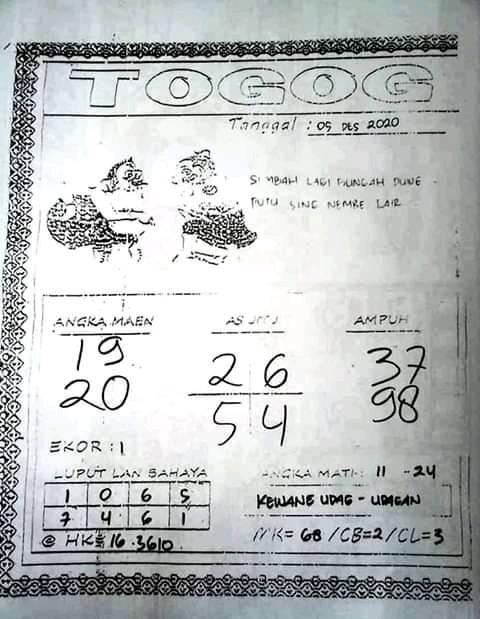 TOGOG
Tanggal : 05 DES 2020
SIMBAH LAGI BUNGAH DUWE
PUTU SING NEMBE LAIR
ANGKA MAEN
19
20
AS JITU
26
54
AMPUH
37
98
EKOR : 1
LUPUT LAN BAHAYA
1 0 6 5
7 4 6 1
@ HK= 16.3610
ANGKA MATI= 11 - 24
KEWANE UDAG - UDAGAN
MK= GB / CB=2 / CL=3